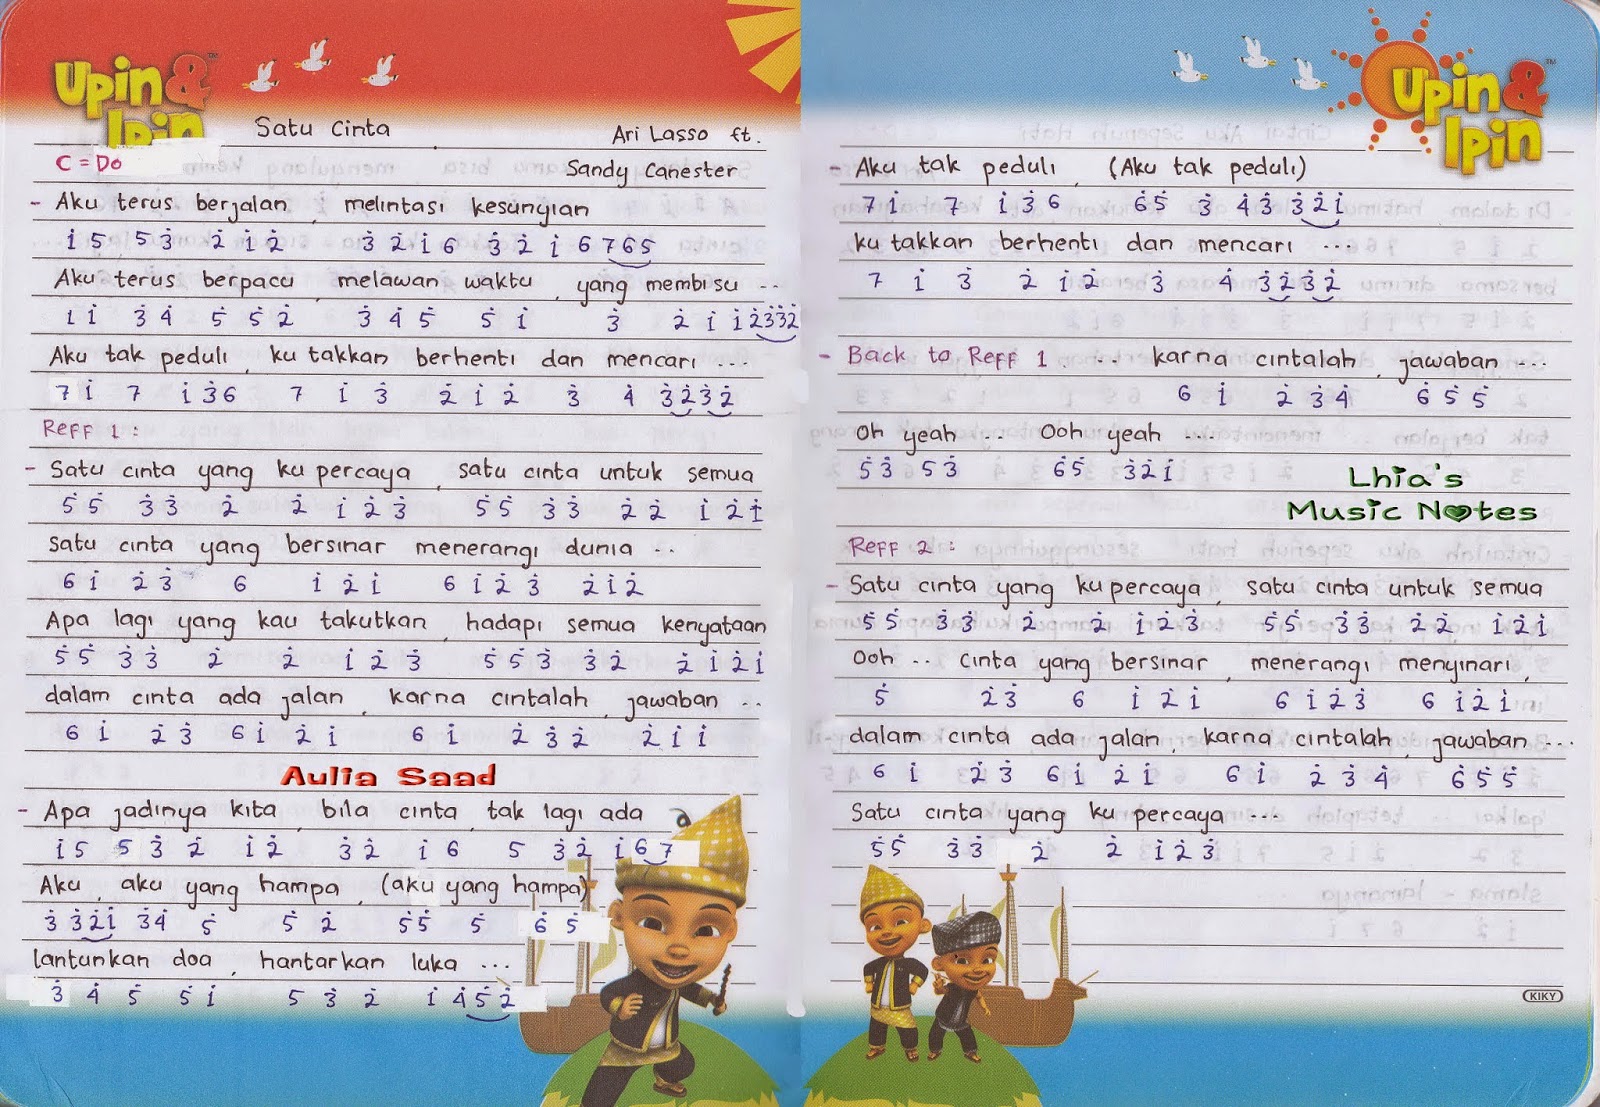 Upin & Ipin
Satu Cinta
Ari Lasso ft.
C = Do
Sandy Canester
- Aku terus berjalan, melintasi kesunyian
1̇ 5 5 3̇ 2̇ 1̇ 2̇ 3̇ 2̇ 1̇ 6 3̇ 2̇ 1̇ 6 7 6 5
Aku terus berpacu, melawan waktu, yang membisu ..
1 1̇ 3̇ 4̇ 5̇ 5̇ 2̇ 3̇ 4̇ 5̇ 5̇ 1̇ 3̇ 2̇ 1̇ 1̇ 2̇ 3̇ 3̇ 2̇
Aku tak peduli, ku takkan berhenti dan mencari ...
7 1̇ 7 1̇ 3̇ 6 7 1̇ 3̇ 2̇ 1̇ 2̇ 3̇ 4̇ 3̇ 2̇ 3̇ 2̇
Reff 1 :
- Satu cinta yang ku percaya, satu cinta untuk semua
5̇ 5̇ 3̇ 3̇ 2̇ 2̇ 1̇ 2̇ 3̇ 5̇ 5̇ 3̇ 3̇ 2̇ 2̇ 1̇ 2̇ 1̇
satu cinta yang bersinar menerangi dunia ..
6 1̇ 2̇ 3̇ 6 1̇ 2̇ 1̇ 6 1̇ 2̇ 3̇ 2̇ 1̇ 2̇
Apa lagi yang kau takutkan, hadapi semua kenyataan
5̇ 5̇ 3̇ 3̇ 2̇ 2̇ 1̇ 2̇ 3̇ 5̇ 5̇ 3̇ 3̇ 2̇ 2̇ 1̇ 2̇ 1̇
dalam cinta ada jalan, karna cintalah, jawaban ..
6 1̇ 2̇ 3̇ 6 1̇ 2̇ 1̇ 6 1̇ 2̇ 3̇ 2̇ 2̇ 1̇ 1̇
Aulia Saad
- Apa jadinya kita, bila cinta, tak lagi ada
1̇ 5 5 3̇ 2̇ 1̇ 2̇ 3̇ 2̇ 1̇ 6 5 3̇ 2̇ 1̇ 6 7
Aku, aku yang hampa, (aku yang hampa)
3̇ 3̇ 2̇ 1̇ 3̇ 4̇ 5̇ 5̇ 2̇ 5̇ 5̇ 5̇ 6̇ 5̇
lantunkan doa, hantarkan luka ...
3̇ 4̇ 5̇ 5̇ 1̇ 5 3̇ 2̇ 1̇ 4̇ 5̇ 2̇
Upin & Ipin
- Aku tak peduli, (Aku tak peduli)
7 1̇ 7 1̇ 3̇ 6 6̇ 5̇ 3̇ 4̇ 3̇ 3̇ 2̇ 1̇
ku takkan berhenti dan mencari ...
7 1̇ 3̇ 2̇ 1̇ 2̇ 3̇ 4̇ 3̇ 2̇ 3̇ 2̇
- Back to Reff 1 ... karna cintalah, jawaban ...
6 1̇ 2̇ 3̇ 4̇ 6̇ 5̇ 5̇
Oh yeah .. Ooh yeah ....
5̇ 3̇ 5̇ 3̇ 6̇ 5̇ 3̇ 2̇ 1̇
Lhia's
Music Notes
Reff 2 :
- Satu cinta yang ku percaya, satu cinta untuk semua
5̇ 5̇ 3̇ 3̇ 2̇ 2̇ 1̇ 2̇ 3̇ 5̇ 5̇ 3̇ 3̇ 2̇ 2̇ 1̇ 2̇ 1̇
Ooh .. cinta yang bersinar, menerangi menyinari,
5̇ 2̇ 3̇ 6 1̇ 2̇ 1̇ 6 1̇ 2̇ 3̇ 6 1̇ 2̇ 1̇
dalam cinta ada jalan, karna cintalah, jawaban ...
6 1̇ 2̇ 3̇ 6 1̇ 2̇ 1̇ 6 1̇ 2̇ 3̇ 4̇ 6̇ 5̇ 5̇
Satu cinta yang ku percaya ...
5̇ 5̇ 3̇ 3̇ 2̇ 2̇ 1̇ 2̇ 3̇
KIKY